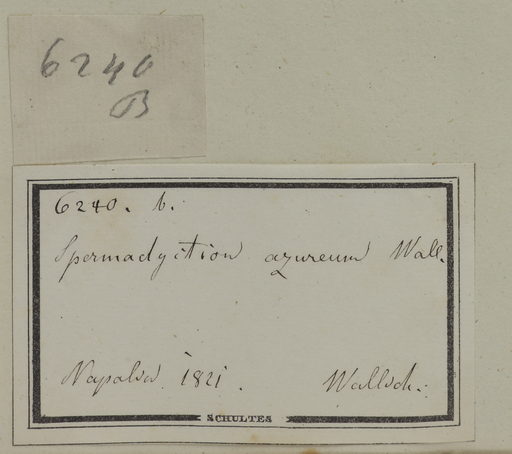 6240
B
6240. b.
Spermadyction azureum Wall.
Napalia 1821.
Wallich.
SCHULTES